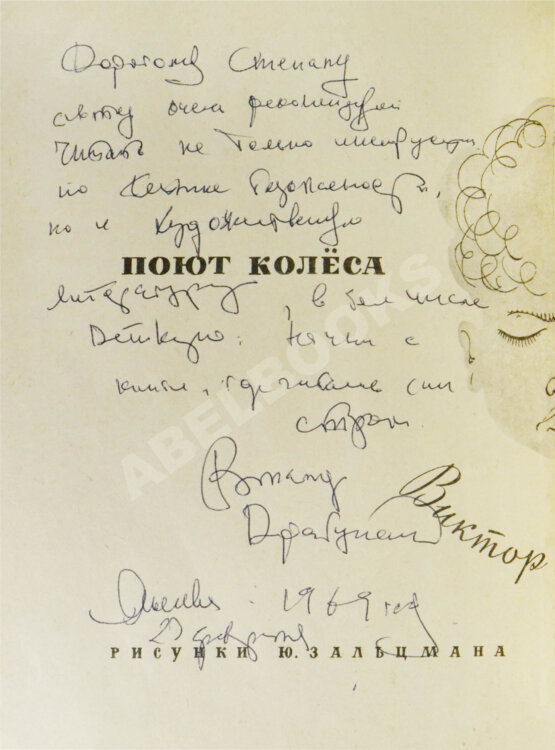 Дорогому Степану
очень рекомендую
читать не только инструкции
по технике безопасности,
но и художественную
ПОЮТ КОЛЁСА
литературу, в том числе
детскую. Начни с
книги,
стран
Виктор
Драгунский
Виктор
1969 год
РИСУНКИ Ю. ЗАЛЬЦМАНА
ABELBOOKS